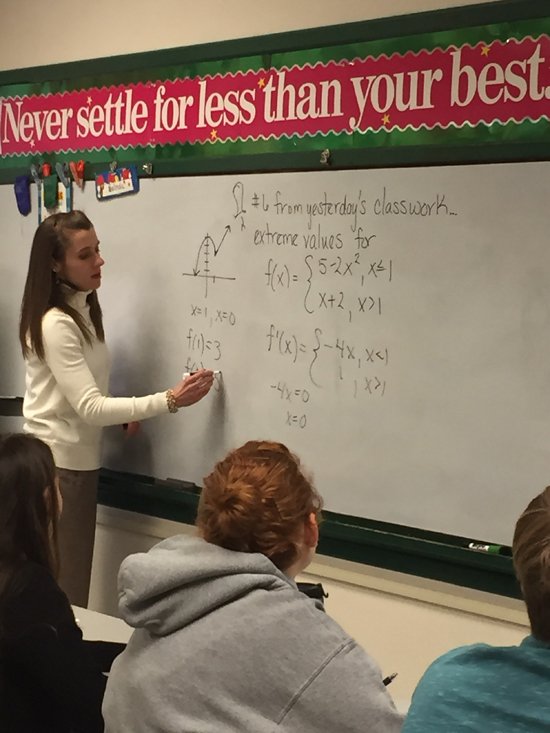 Never settle for less than your best.
#6 from yesterday's classwork...
extreme values for
f(x) = { 5-2x², x≤1
x+2, x>1
x=1, x=0
f(1)=3
f'(x) = { -4x, x<1
1, x>1
-4x=0
x=0